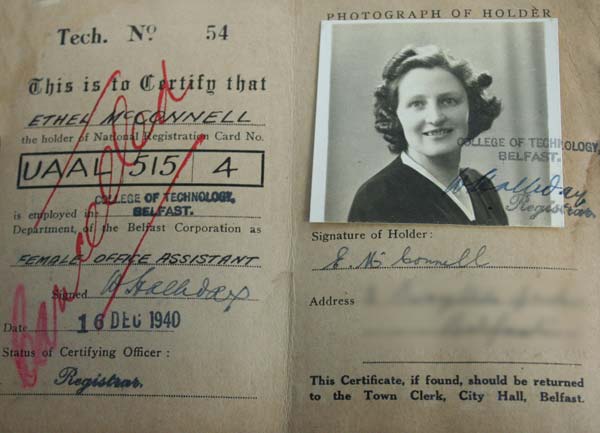 Tech. Nº 54
This is to Certify that
ETHEL McCONNELL
the holder of National Registration Card No.
UAAL 515 4
COLLEGE OF TECHNOLOGY,
BELFAST.
is employed in
Department, of the Belfast Corporation as
FEMALE OFFICE ASSISTANT
Signed W Halliday
Date 16 DEC 1940
Status of Certifying Officer :
Registrar.
Cancelled
PHOTOGRAPH OF HOLDER
COLLEGE OF TECHNOLOGY,
BELFAST.
W Halliday
Registrar.
Signature of Holder :
E. Mc Connell
Address
This Certificate, if found, should be returned
to the Town Clerk, City Hall, Belfast.